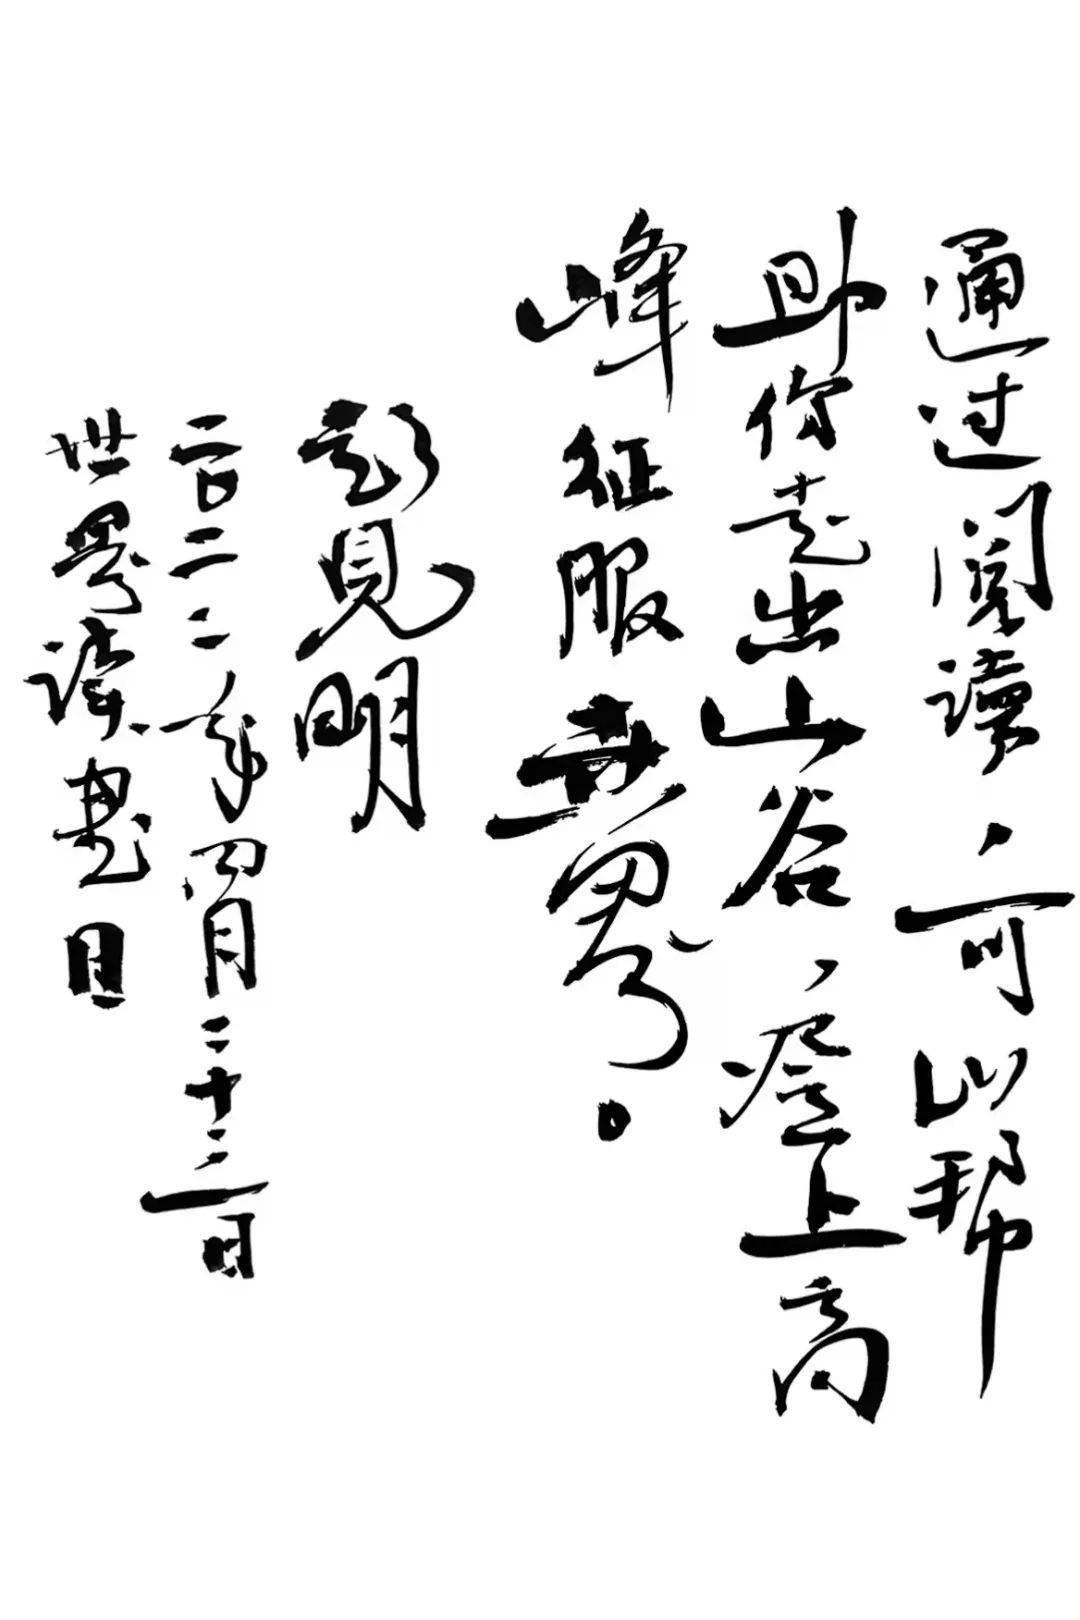 通过阅读，可以帮
助你走出山谷，登上高
峰征服世界。
彭見明
二〇二二年四月二十三日
世界读书日